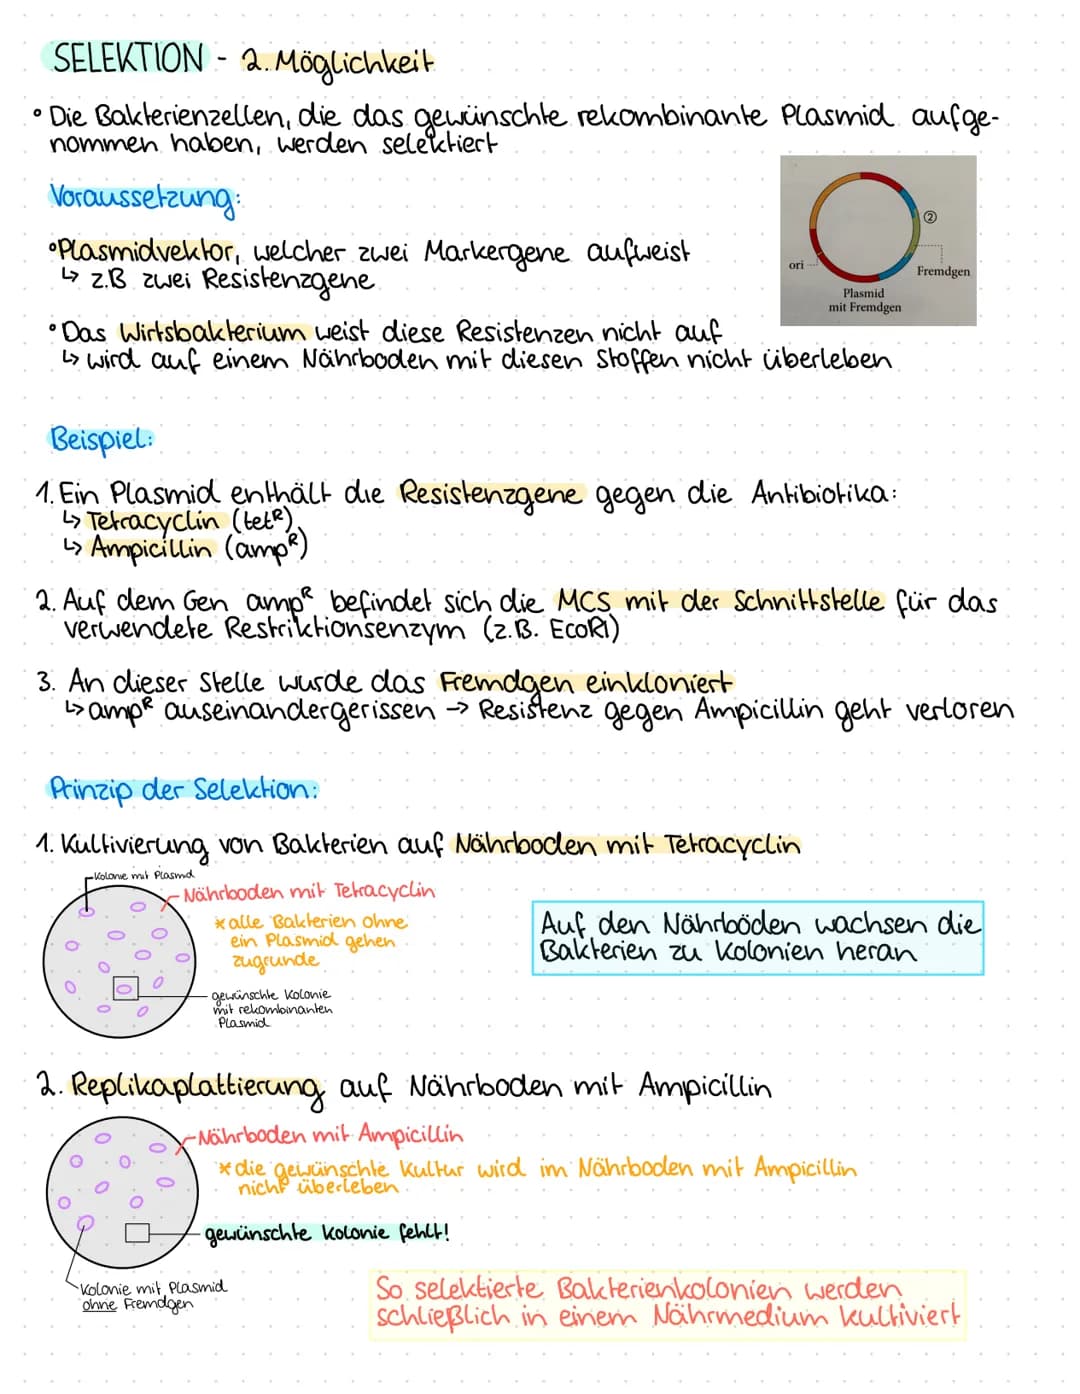 SELEKTION - 2. Möglichkeit
• Die Bakterienzellen, die das gewünschte rekombinante Plasmid aufge-
nommen haben, werden selektiert
Voraussetzung:
• Plasmidvektor, welcher zwei Markergene aufweist
↳ z.B zwei Resistenzgene
②
ori
Fremdgen
Plasmid
mit Fremdgen
• Das Wirtsbakterium weist diese Resistenzen nicht auf
↳ wird auf einem Nährboden mit diesen Stoffen nicht überleben
Beispiel:
1. Ein Plasmid enthält die Resistenzgene gegen die Antibiotika:
↳ Tetracyclin (tetᴿ)
↳ Ampicillin (ampᴿ)
2. Auf dem Gen ampᴿ befindet sich die MCS mit der Schnittstelle für das
verwendete Restriktionsenzym (z.B. EcoRI)
3. An dieser Stelle wurde das Fremdgen einkloniert
↳ ampᴿ auseinandergerissen → Resistenz gegen Ampicillin geht verloren
Prinzip der Selektion:
1. Kultivierung von Bakterien auf Nährboden mit Tetracyclin
Kolonie mit Plasmid
Nährboden mit Tetracyclin
* alle Bakterien ohne
ein Plasmid gehen
zugrunde
gewünschte Kolonie
mit rekombinanten
Plasmid
Auf den Nährböden wachsen die
Bakterien zu Kolonien heran
2. Replikaplattierung auf Nährboden mit Ampicillin
Nährboden mit Ampicillin
* die gewünschte Kultur wird im Nährboden mit Ampicillin
nicht überleben
gewünschte Kolonie fehlt!
Kolonie mit Plasmid
ohne Fremdgen
So selektierte Bakterienkolonien werden
schließlich in einem Nährmedium kultiviert